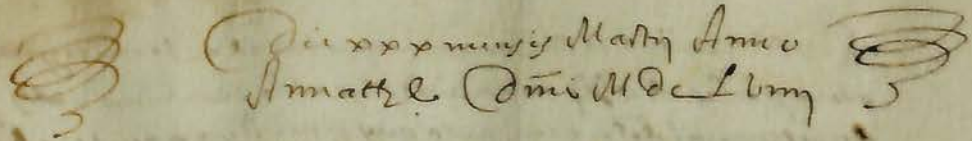 Die xxx mensis Martii Anno
A nativitate Dmi M dc L viiij